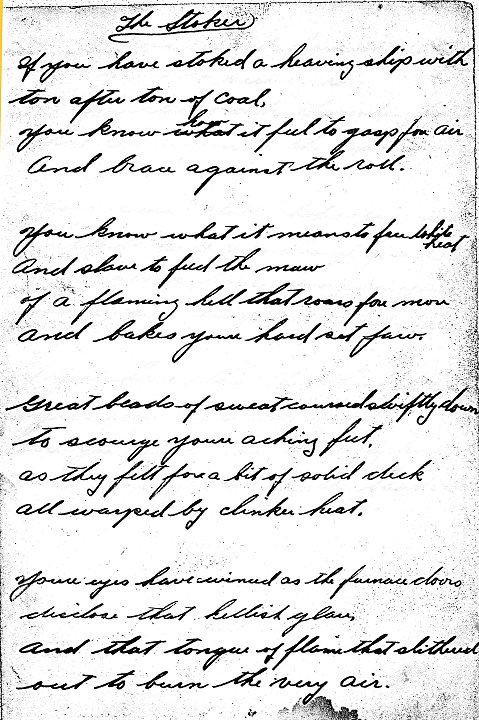 The Stoker
If you have stoked a heaving ship with
ton after ton of coal,
how
you know what it feel to gasp for air
And brace against the roll.
You know what it means to face white
heat
And slave to feed the maw
of a flaming hell that roars for more
and bakes youre hard set jaw.
Great beads of sweat coursed swiftly down
to scourge youre aching feet,
as they felt for a bit of solid deck
all warped by clinker heat.
Youre eyes have winced as the furnace doors
disclose that hellish glare,
and that tongue of flame that slithered
out to burn the very air.